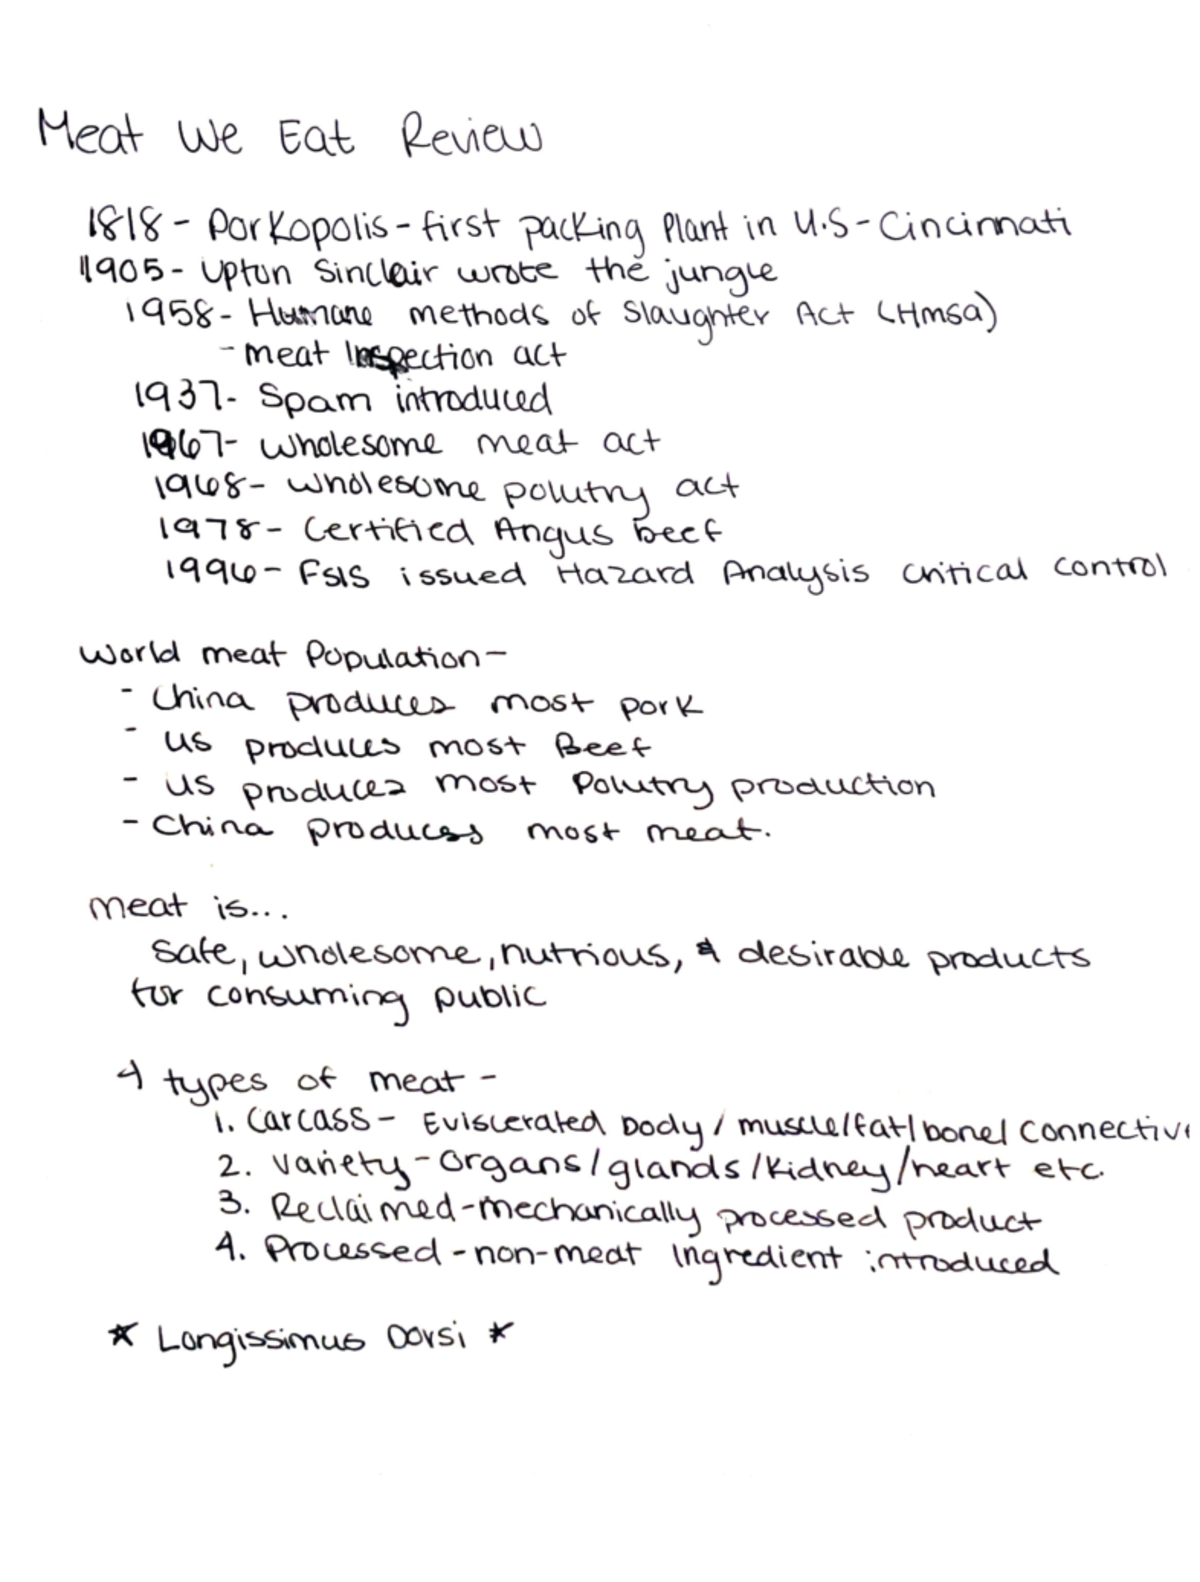 Meat We Eat Review
1818 - Porkopolis - first packing Plant in U.S - Cincinnati
1905 - Upton Sinclair wrote the jungle
1958 - Humane methods of Slaughter Act (Hmsa)
- meat Inspection act
1937 - Spam introduced
1967 - wholesome meat act
1968 - wholesome polutry act
1978 - Certified Angus beef
1996 - FSIS issued Hazard Analysis critical control
World meat Population -
- China produces most pork
- US produces most Beef
- US produces most Polutry production
- China produces most meat.
meat is...
safe, wholesome, nutrious, & desirable products
for consuming public
4 types of meat -
1. Carcass - Eviscerated body / muscle/fat/bone/ connective
2. Variety - Organs / glands / kidney / heart etc.
3. Reclaimed - mechanically processed product
4. Processed - non-meat Ingredient introduced
* Longissimus Dorsi *